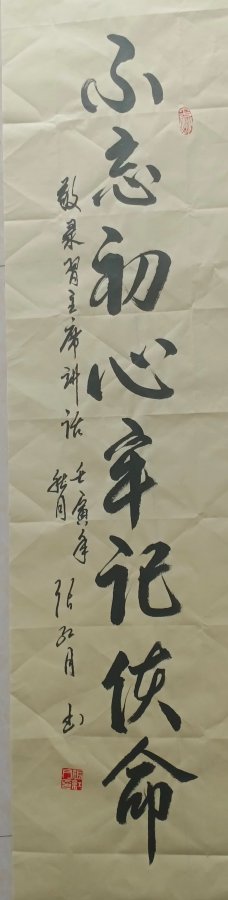 不忘初心牢记使命
敬录习主席讲话 壬寅年
秋月 张红月 书